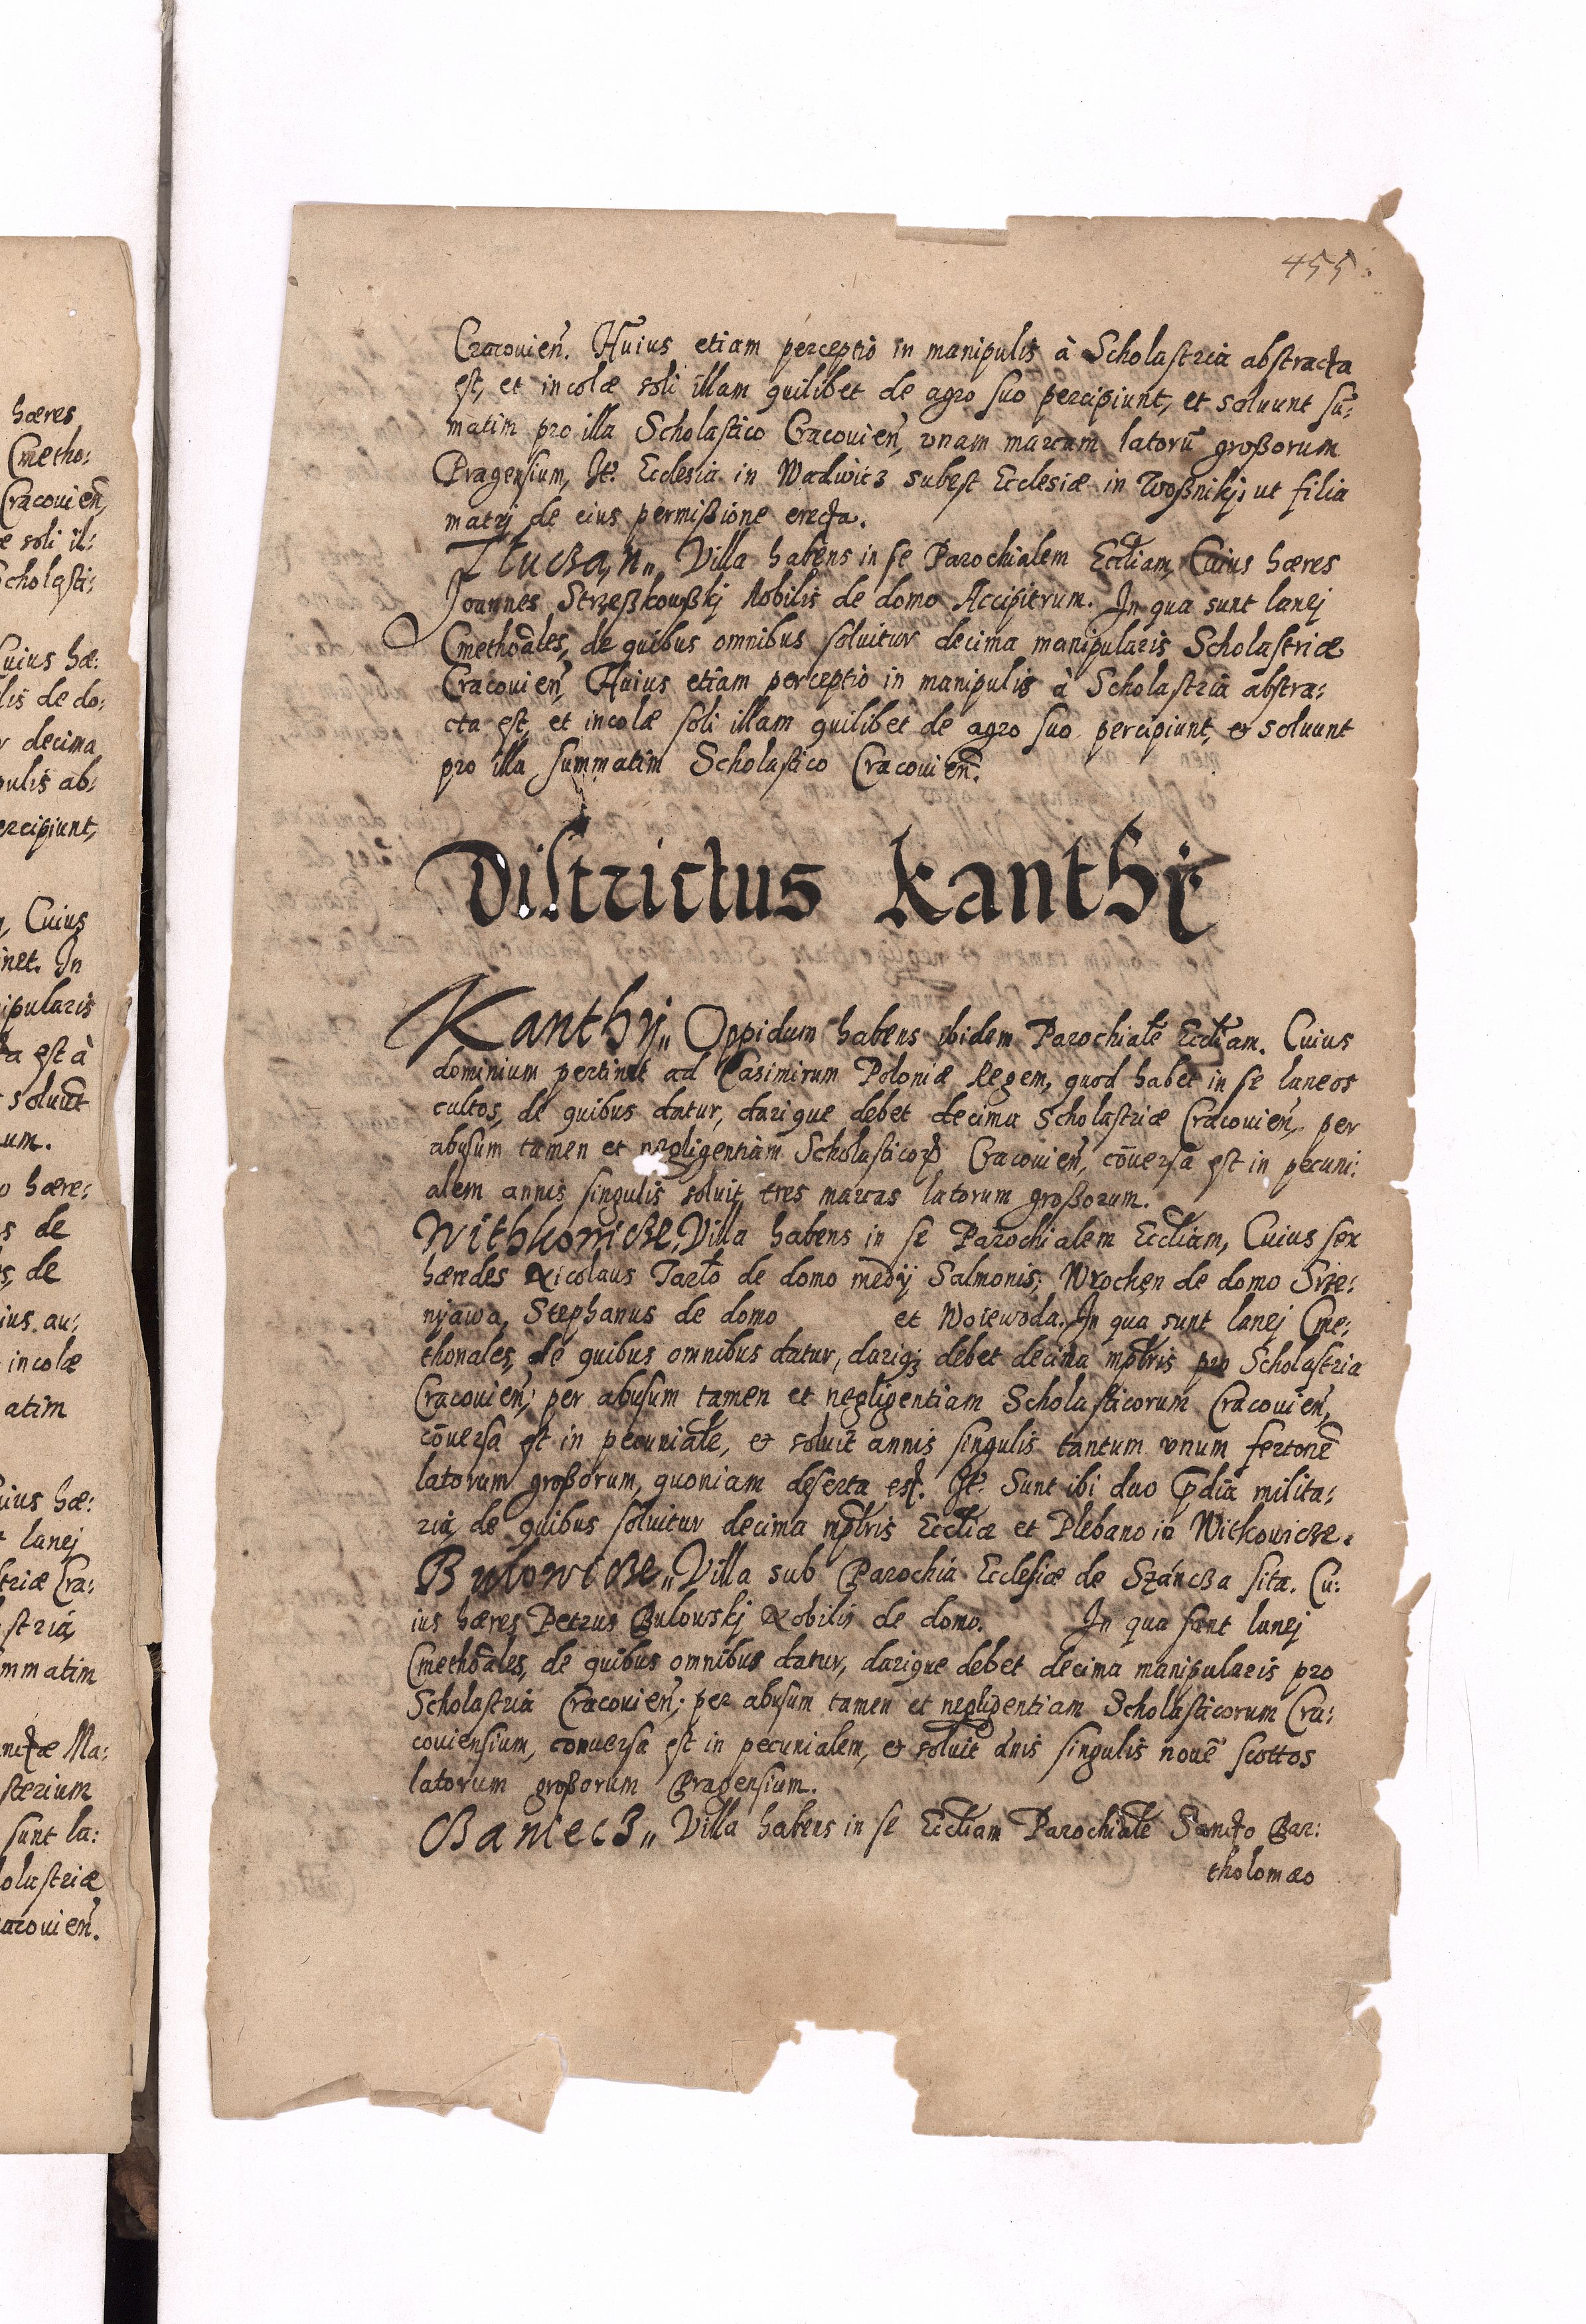 hæres
Cmetho:
Cracouien̄,
e soli il:
Scholasti:
Cuius hæ:
lis de do:
r decima
pulis ab:
ercipiunt,
, Cuius
inet. In
ipularis
ta est à
soluūt
um.
o hære:
s de
s, de
ius au:
incolæ
atim
uius hæ:
lanej
triæ Cra:
stria,
mmatim
nctæ Ma:
sterium
sunt la:
olastriæ
racouien̄.
455
Cracouien̄. Huius etiam perceptio in manipulis à Scholastria abstracta
est, et incolæ soli illam quilibet de agro suo percipiunt, et soluunt sū:
matim pro illa Scholastico Cracouien̄, vnam marcam latorū großorum
Pragensium, It: Ecclesia in Wadwicz subest Ecclesiæ in Woßnikj, ut filia
matrj de eius permißione erecta.
Tluczan,, Villa habens in se Parochialem Eccl̄iam, Cuius hæres
Joannes Strzeßkowßkj Nobilis de domo Accipitrum. In qua sunt lanej
Cmethōales, de quibus omnibus soluitur decima manipularis Scholastriæ
Cracouien̄, Huius etiam perceptio in manipulis à Scholastria abstra:
cta est, et incolæ soli illam quilibet de agro suo percipiunt, & soluunt
pro illa summatim Scholastico Cracouien̄.
Districtus Kanthÿ
Kanthÿ,, Oppidum habens ibidem Parochialē Eccl̄iam. Cuius
dominium pertinet ad Casimirum Poloniæ Regem, quod habet in se laneos
cultos, de quibus datur, darique debet decima Scholastriæ Cracouien̄, per
abusum tamen et negligentiam Scholasticorꝝ Cracouien̄, cōuersa est in pecuni:
alem annis singulis soluit tres marcas latorum großorum.
Withkowicze, Villa habens in se Parochialem Eccl̄iam, Cuius sex
hæredes Nicolaus Tarło de domo medÿ Salmonis, Wrochen de domo Srze:
njawa, Stephanus de domo et Woiewoda. In qua sunt lanej Cme:
thonales, de quibus omnibus datur, dariqꝫ debet decima mpl̄ris pro Scholastria
Cracouien̄; per abusum tamen et negligentiam Scholasticorum Cracouien̄,
cōuersa est in pecunialē, & soluit annis singulis tantum vnum fertonē
latorum großorum, quoniam deserta est. It: Sunt ibi duo p̄dia milita:
ria, de quibus soluitur decima mpl̄ris Eccl̄iæ et Plebano in Witkowicze.
Bulowicze,, Villa sub Parochia Ecclesiæ de Száncza sita. Cu:
ius hæres Petrus Bulowskj Nobilis de domo. In qua sunt lanej
Cmethōales, de quibus omnibus datur, darique debet decima manipularis pro
Scholastria Cracouien̄; per abusum tamen et negligentiam Scholasticorum Cra:
couiensium, conuersa est in pecunialem, & soluit ānis singulis nouē scottos
latorum großorum Pragensium.
Baniecz,, Villa habens in se Eccl̄iam Parochialē Sancto Bar:
tholomæo